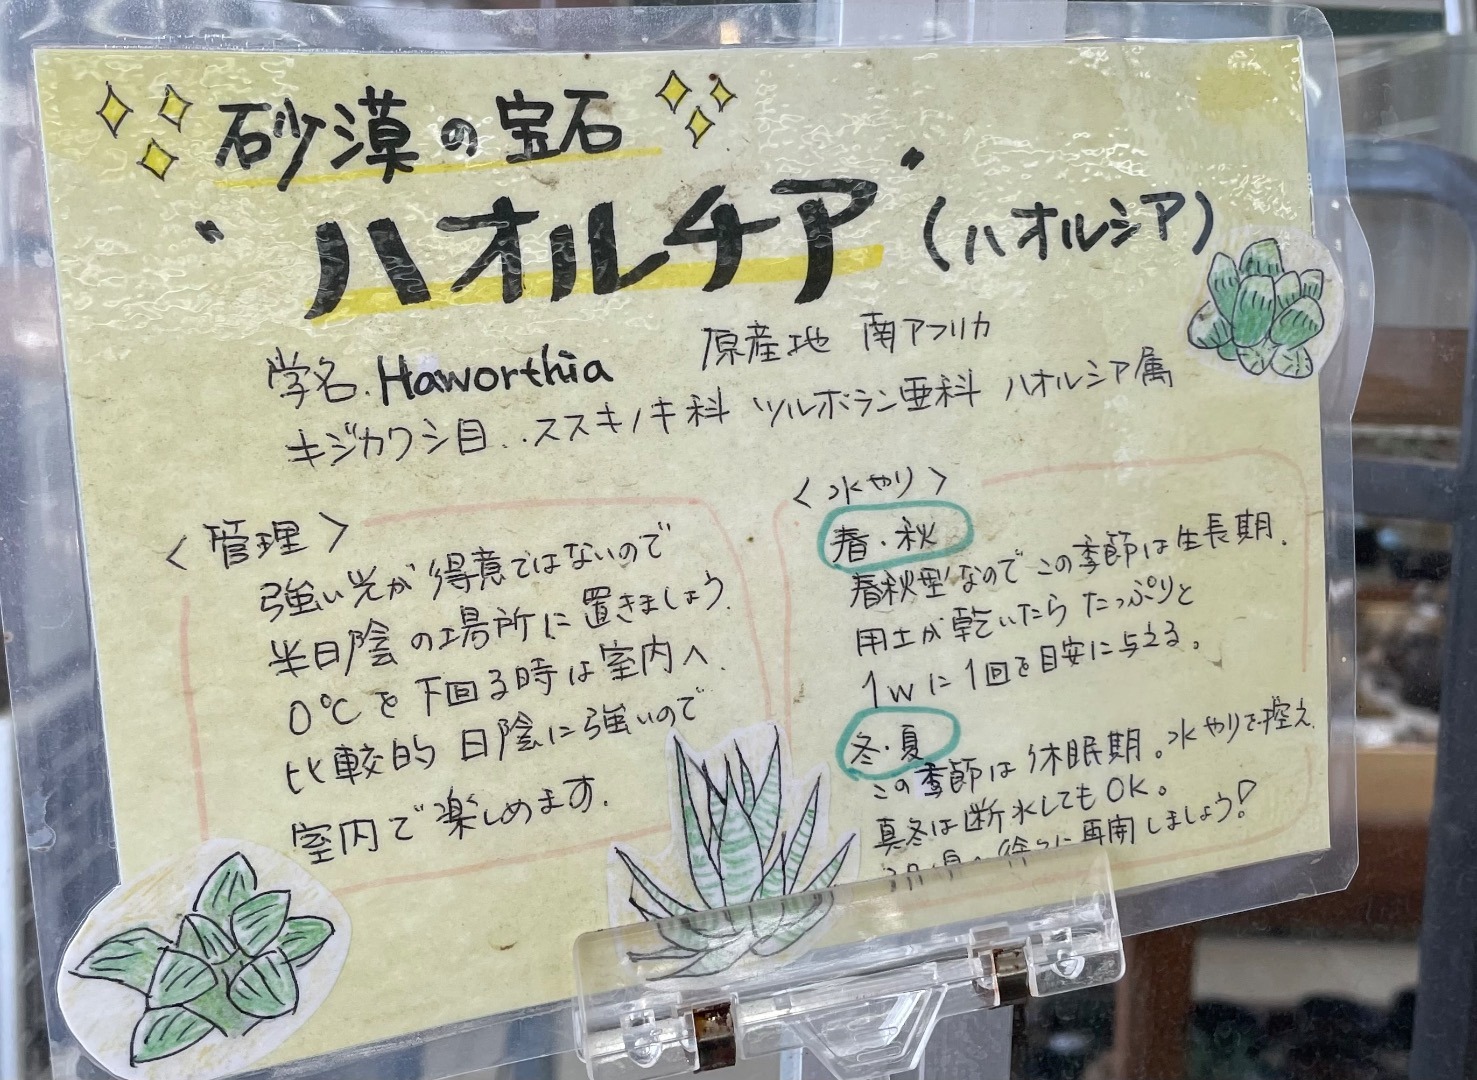 砂漠の宝石
"ハオルチア"(ハオルシア)
学名.Haworthia 原産地 南アフリカ
キジカクシ目..ススキノキ科 ツルボラン亜科 ハオルシア属
<管理>
強い光が得意ではないので
半日陰の場所に置きましょう.
0℃を下回る時は室内へ.
比較的日陰に強いので
室内で楽しめます.
<水やり>
春・秋
春秋型なのでこの季節は生長期.
用土が乾いたらたっぷりと
1wに1回を目安に与える。
冬・夏
この季節は休眠期。水やりを控え.
真冬は断水してもOK。
徐々に再開しましょう!